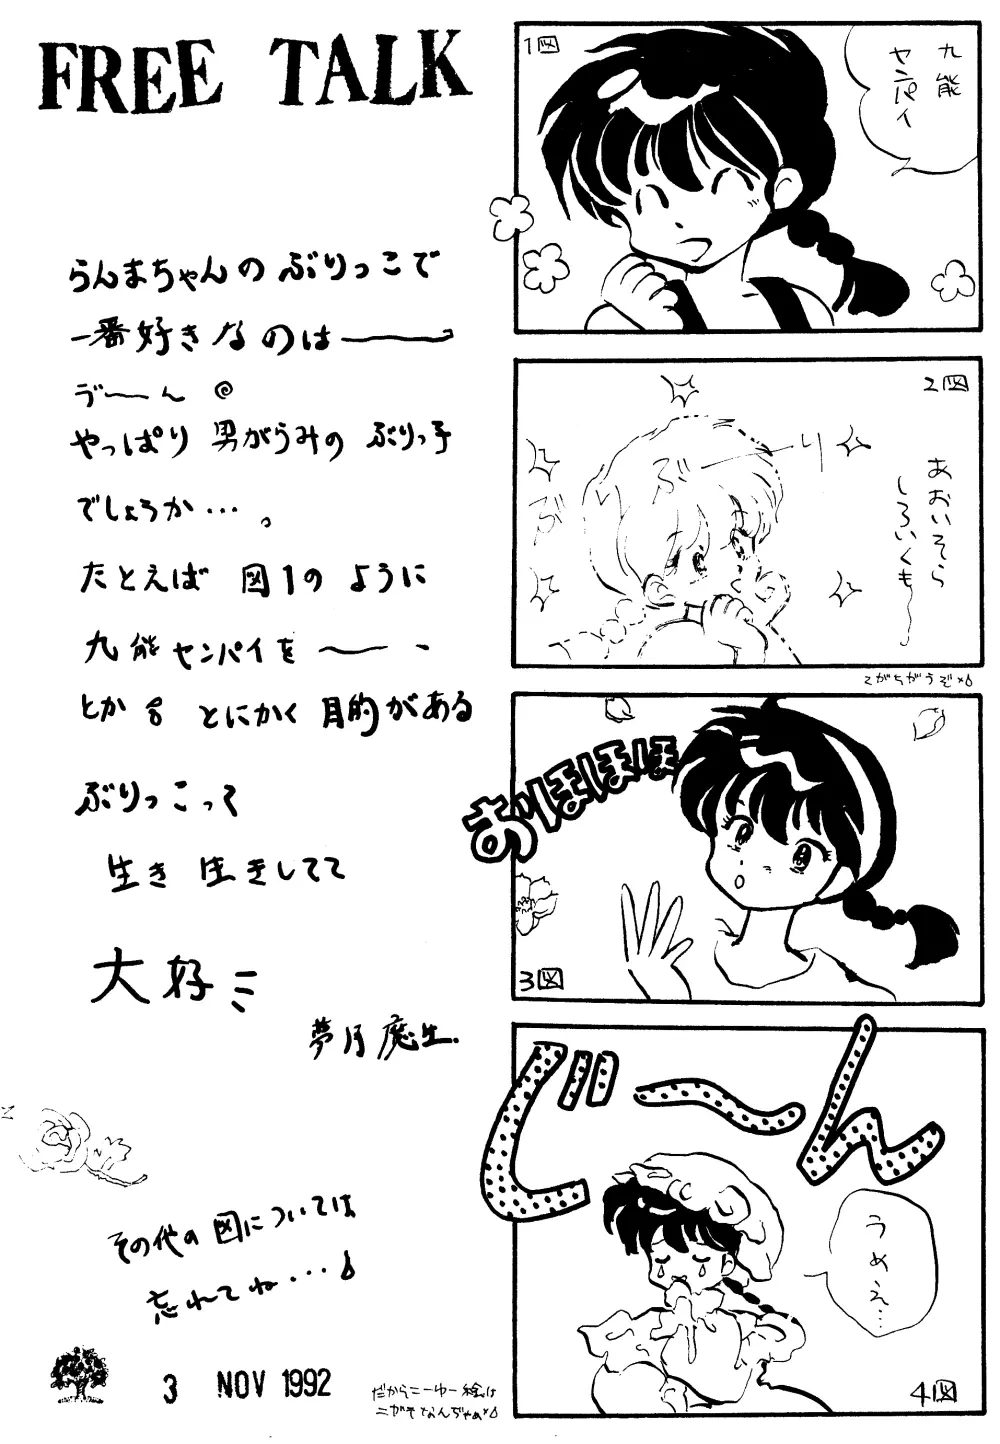 FREE TALK
らんまちゃんの ぶりっこで
一番好きなのは――
デ〜ん
やっぱり 男がらみの ぶりっ子
でしょうか…。
たとえば 図1の ように
九能センパイを ――
とか とにかく 目的がある
ぶりっこって
生き生きしてて
大好
夢月魔生.
その他の図については
忘れてね…
3 NOV 1992
1図
九能
センパイ
2図
ぶ―り
ぶ
あおいそら
しろいくも〜
おーほほほほ
3図
じ〜ん
うめえ…
4図